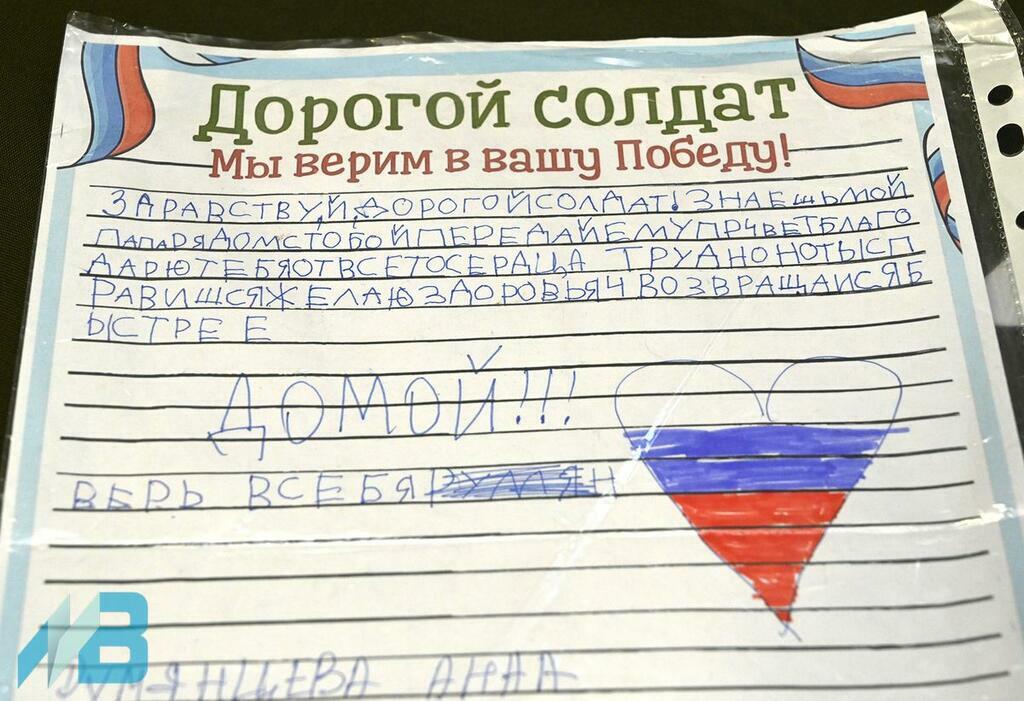 Дорогой солдат
Мы верим в вашу Победу!
ЗДРАВСТВУЙ, ДОРОГОЙ СОЛДАТ! ЗНАЕШЬ МОЙ
ПАПА РЯДОМ С ТОБОЙ ПЕРЕДАЙ ЕМУ ПРЧВЕТ БЛАГО
ДАРЮ ТЕБЯ ОТ ВСЕГО СЕРДЦА ТРУДНО НО ТЫ СП
РАВИШСЯ ЖЕЛАЮ ЗДОРОВЬЯ Ч ВОЗВРАЩАЙСЯ Б
ЫСТРЕЕ
ДОМОЙ!!!
ВЕРЬ В СЕБЯ
РУМЯНЦЕВА АННА